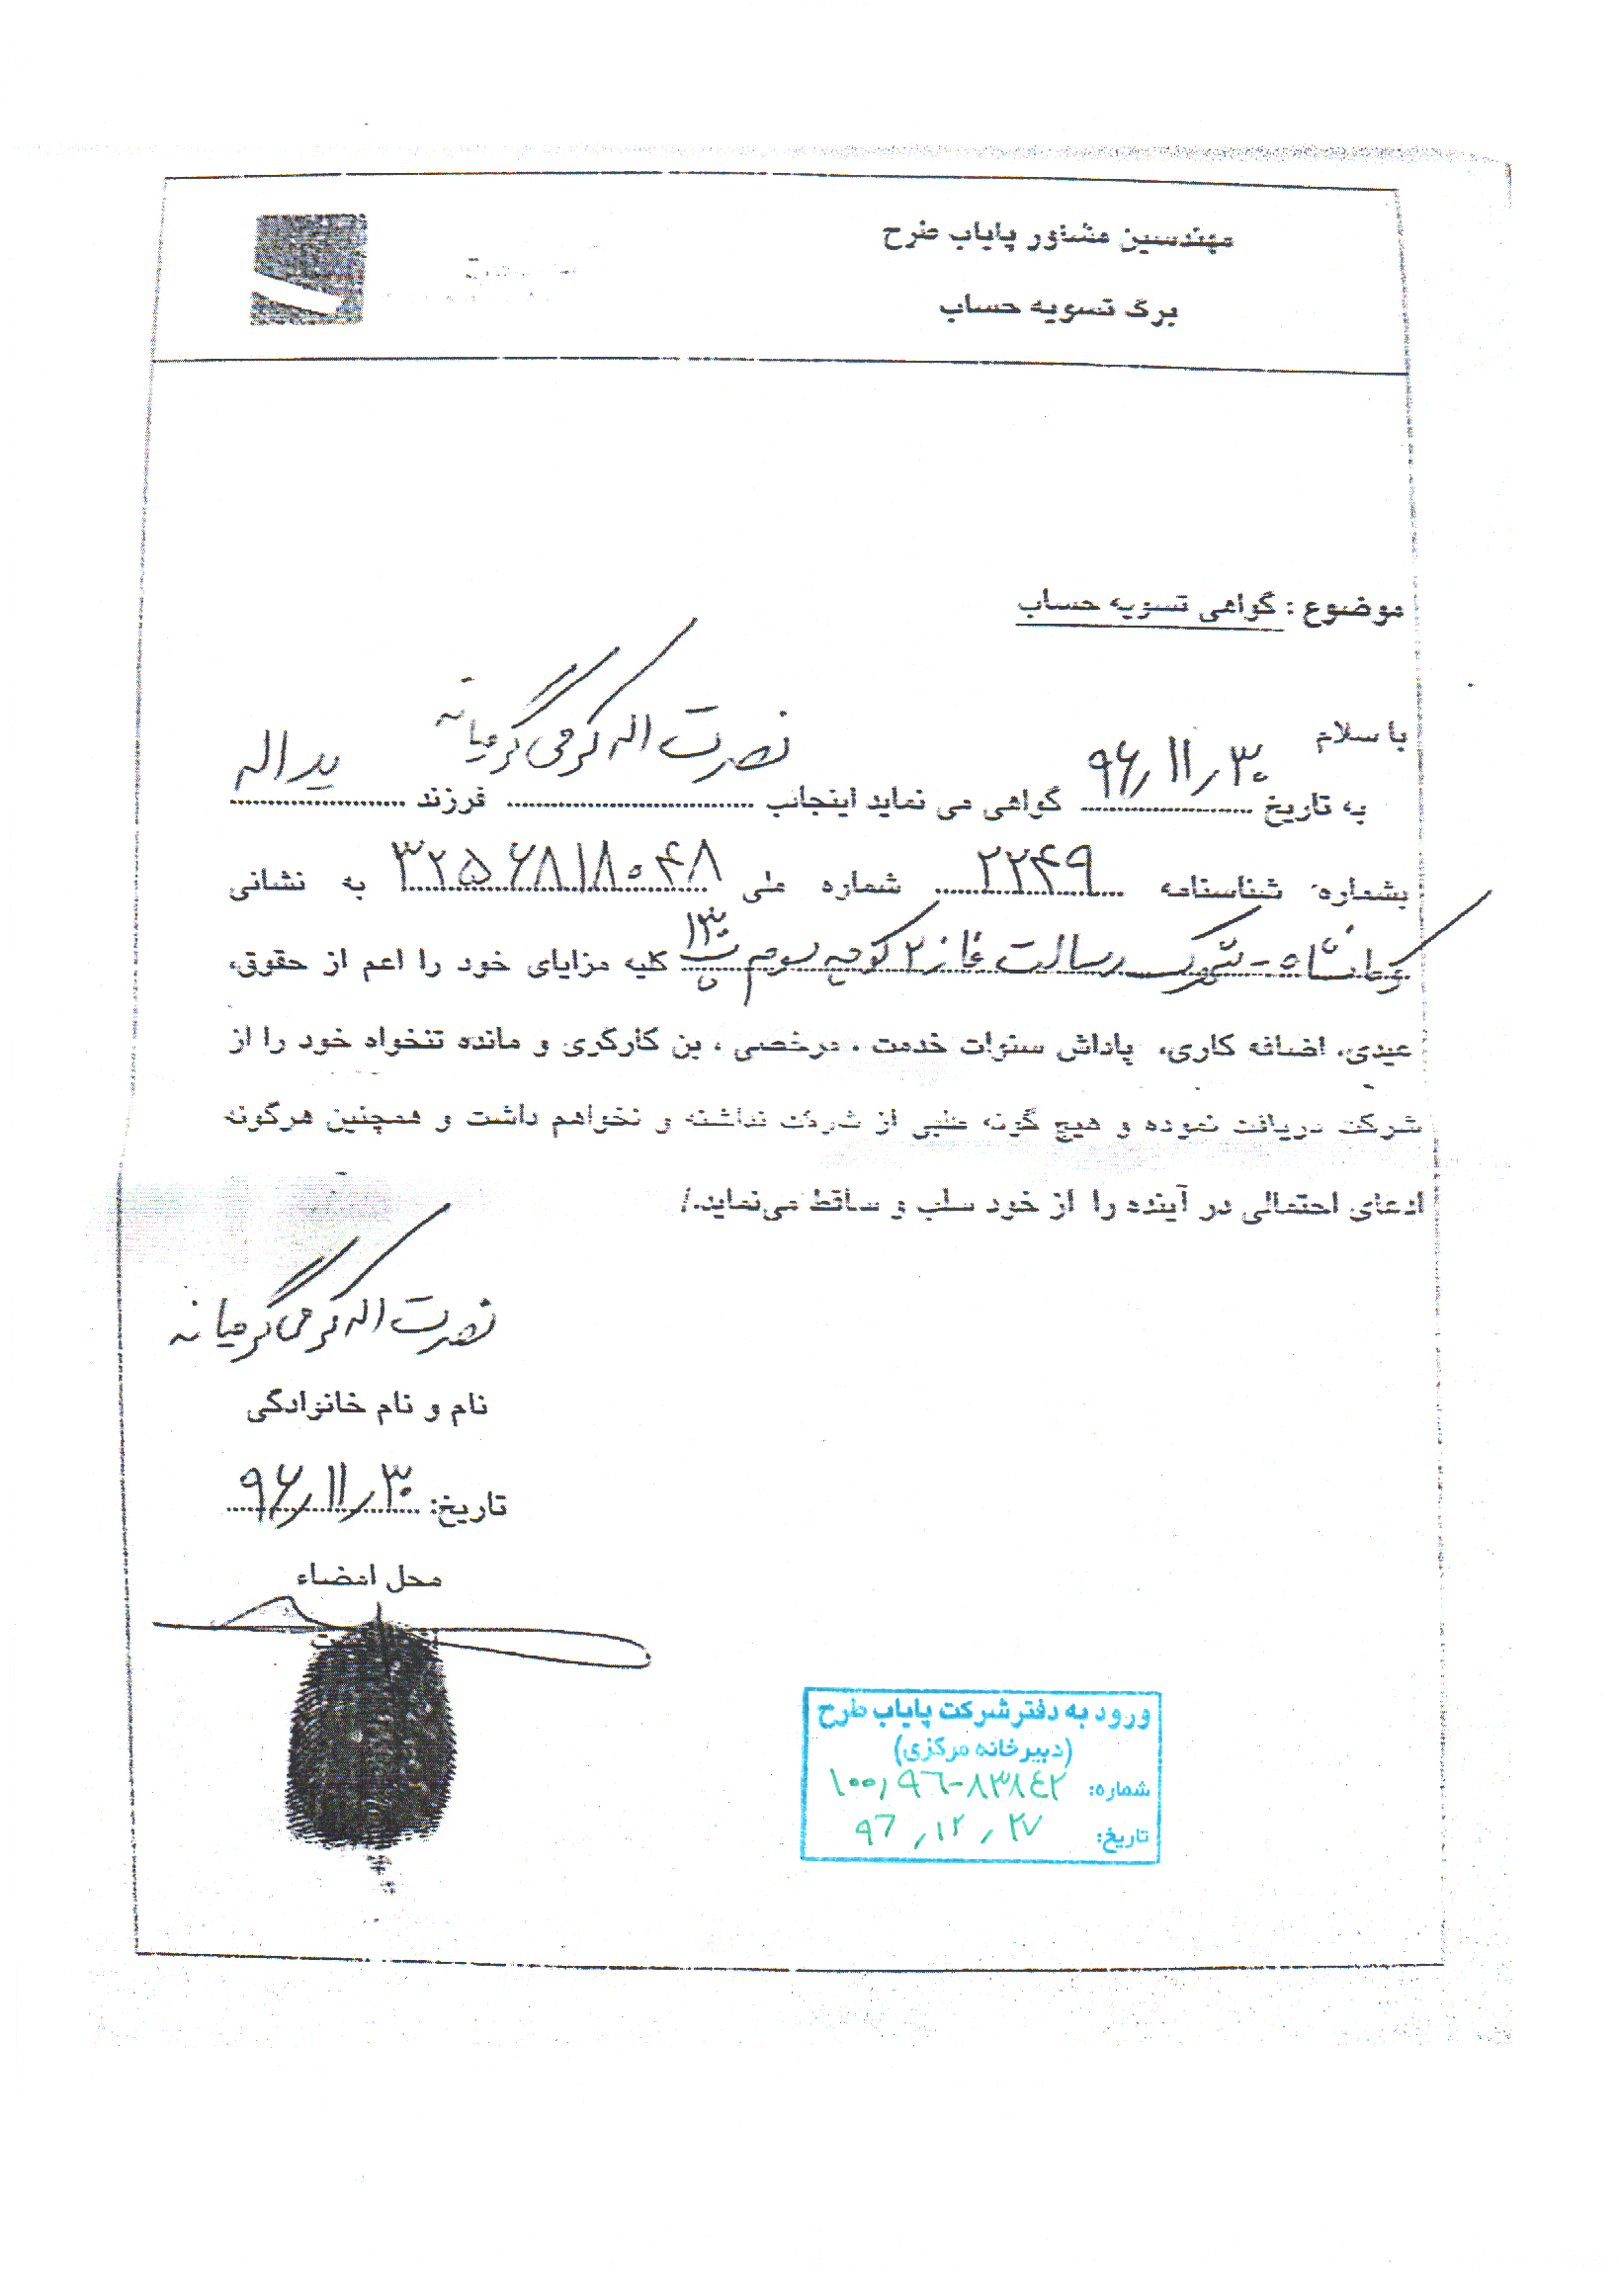 مهندسین مشاور پایاب طرح
برگ تسویه حساب
موضوع : گواهی تسویه حساب
با سلام
به تاریخ ۹۶/۱۱/۳۰ گواهی می نماید اینجانب نصرت اله کرمی گرمیانه فرزند یداله
بشماره شناسنامه ۲۲۴۹ شماره ملی ۳۲۵۶۸۱۸۰۴۸ به نشانی
کرمانشاه - شهرک رسالت فاز ۲ کوچه سوم پ ۱۳۰ کلیه مزایای خود را اعم از حقوق،
عیدی، اضافه کاری، پاداش سنوات خدمت ، مرخصی ، بن کارگری و مانده تنخواه خود را از
شرکت دریافت نموده و هیچ گونه طلبی از شرکت نداشته و نخواهم داشت و همچنین هرگونه
ادعای احتمالی در آینده را از خود سلب و ساقط می‌نماید./
نصرت اله کرمی گرمیانه
نام و نام خانوادگی
تاریخ: ۹۶/۱۱/۳۰
محل امضاء
ورود به دفتر شرکت پایاب طرح
(دبیرخانه مرکزی)
شماره: ۱۰۰/۹۶-۸۳۸۴۲
تاریخ: ۹۶/۱۲/۲۷